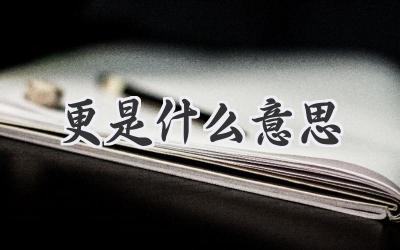 更是什么意思